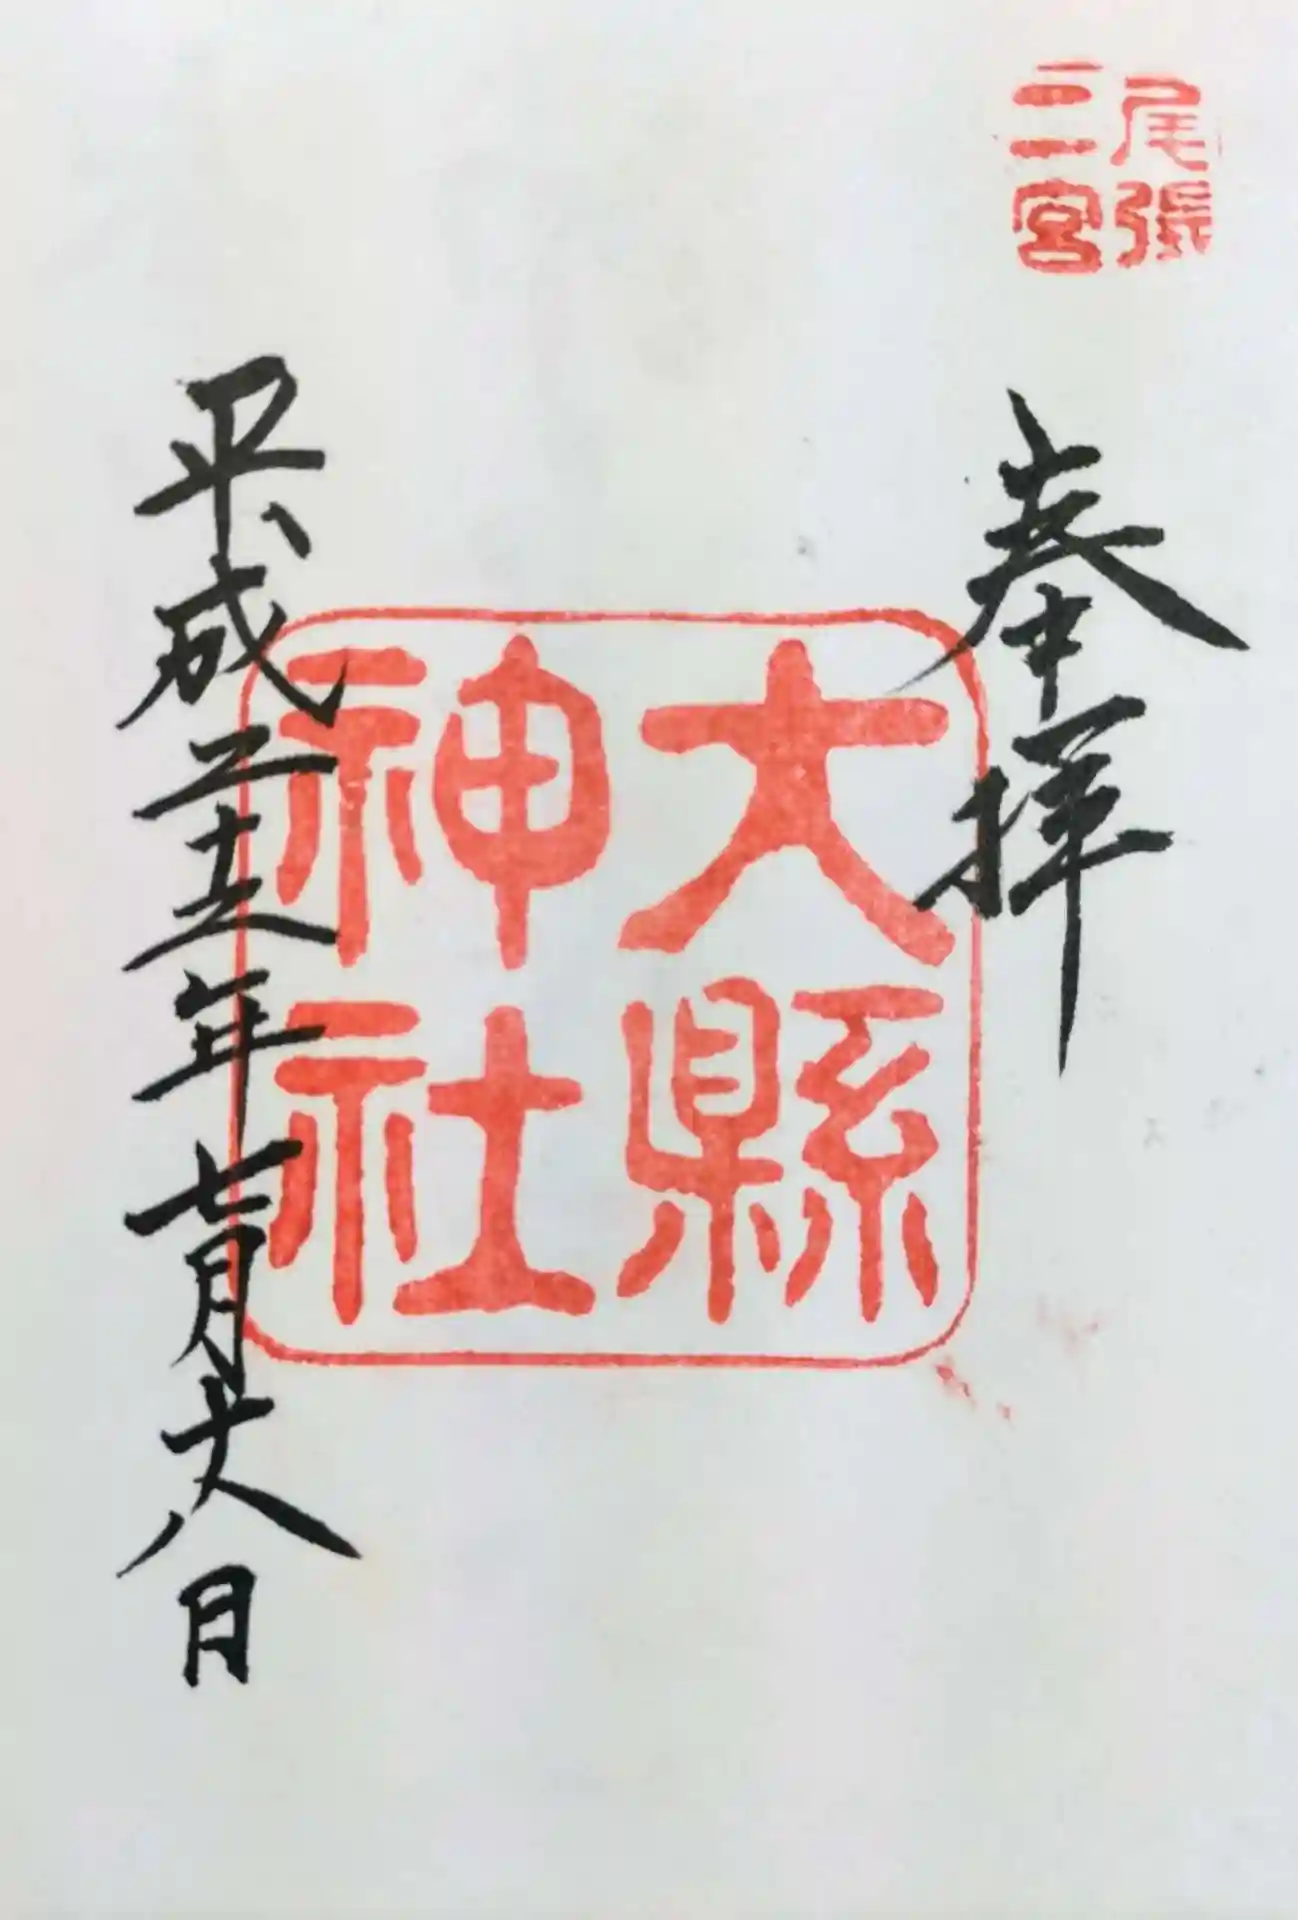 尾張
二宮
奉拝
大縣
神社
平成二十五年七月十八日